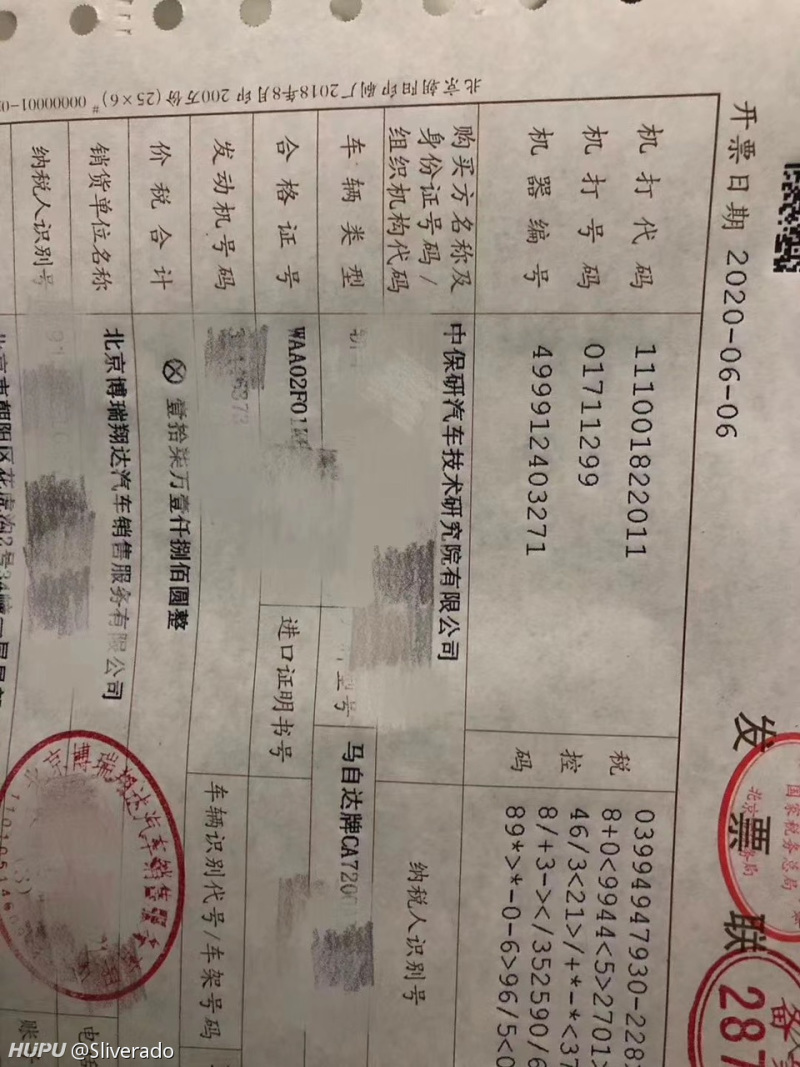 北京朝阳印刷厂2018年8月印 200万份(25×6)# 00000001-0
开票日期 2020-06-06
发票联
机打代码 111001822011
机打号码 01711299
机器编号 499912403271
税控码
03994947930-228
8+0<9944<5>2701>
46/3<21>/+*-*<37
8/+3-></352590/6
89*>*-0-6>96/5<0
购买方名称及
身份证号码/
组织机构代码
中保研汽车技术研究院有限公司
纳税人识别号
车辆类型
型号
马自达牌CA720
合格证号 WAA02F01
进口证明书号
发动机号码
373
车辆识别代号/车架号码
价税合计 ⊗ 壹拾柒万壹仟捌佰圆整
销货单位名称 北京博瑞翔达汽车销售服务有限公司
纳税人识别号
北京市朝阳区
国家税务总局
287
HUPU @Sliverado